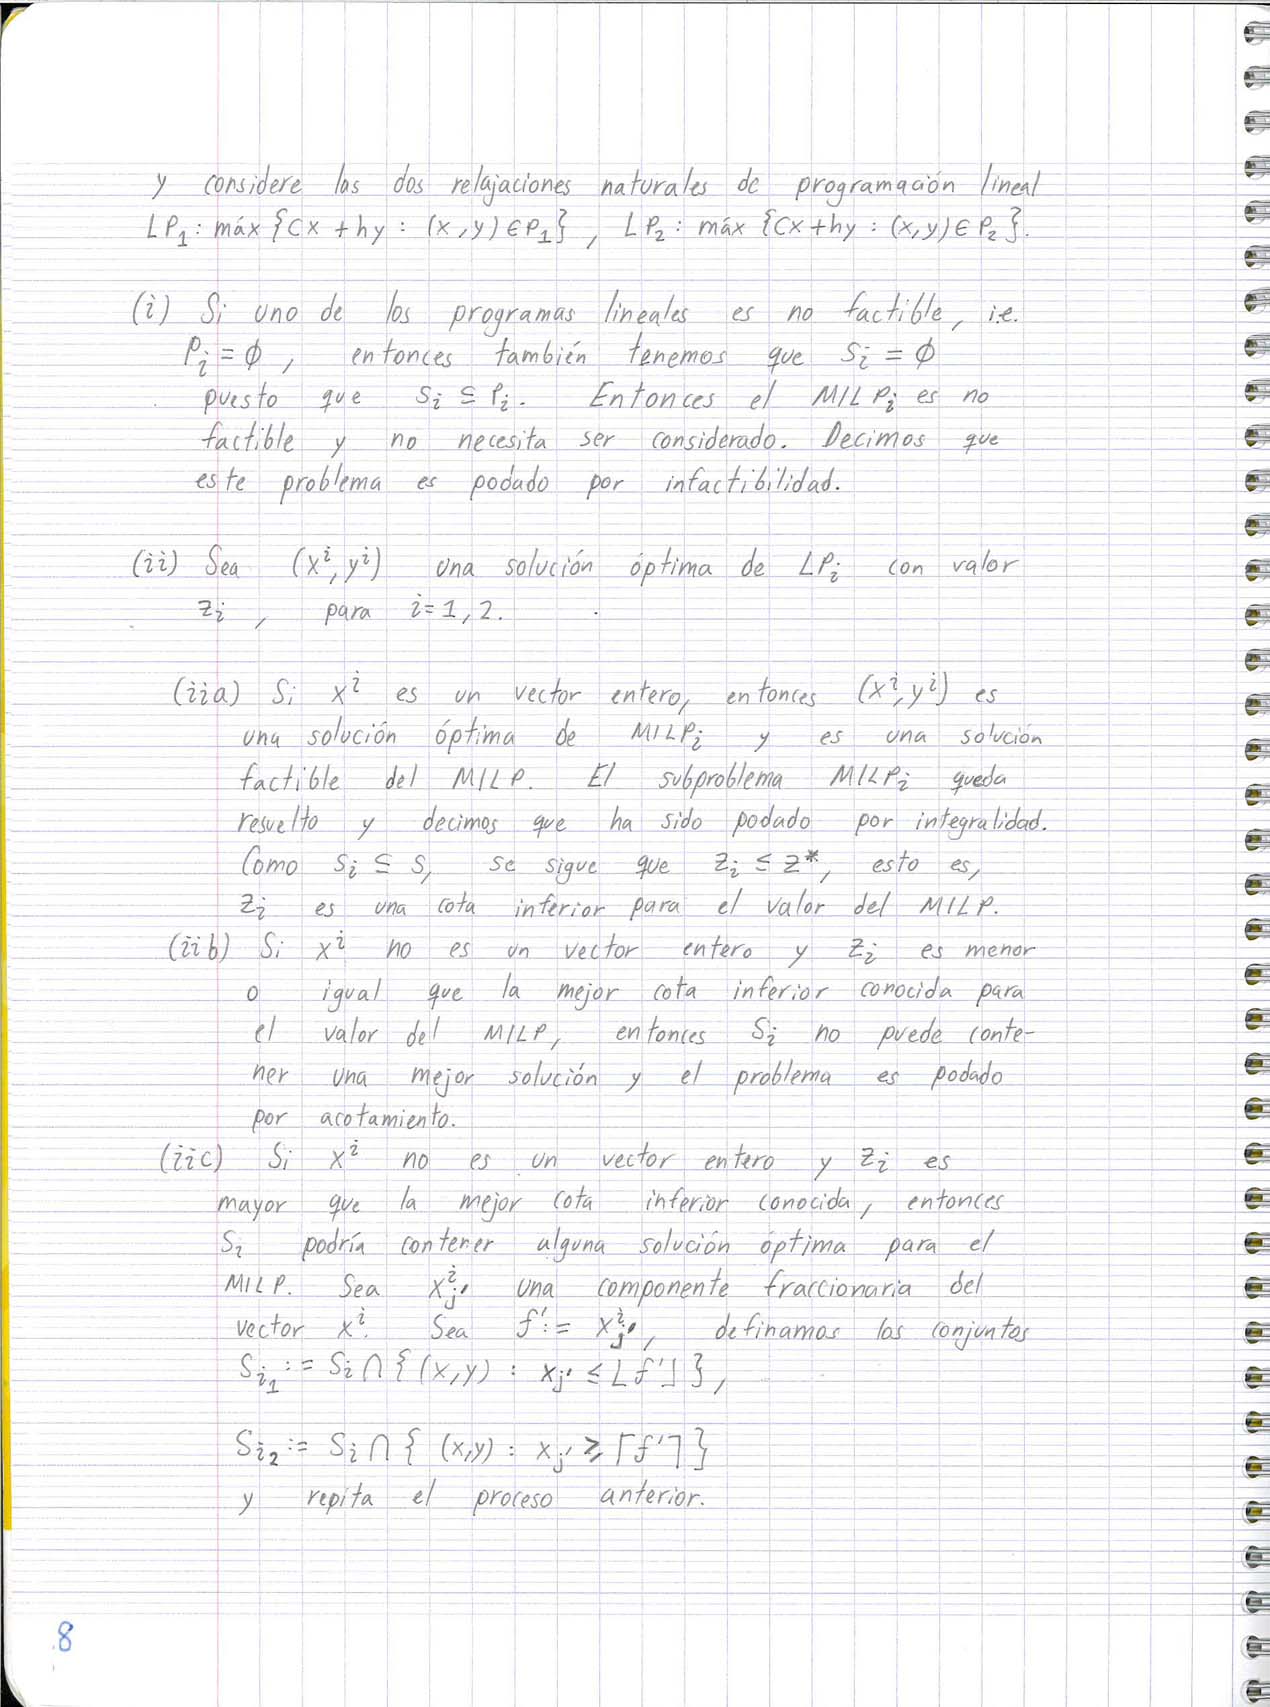 y considere las dos relajaciones naturales de programación lineal
LP₁: máx {cx + hy : (x,y) ∈ P₁}, LP₂: máx {cx + hy : (x,y) ∈ P₂}.
(i) Si uno de los programas lineales es no factible, i.e.
Pᵢ = ∅, entonces también tenemos que Sᵢ = ∅
puesto que Sᵢ ⊆ Pᵢ. Entonces el MILPᵢ es no
factible y no necesita ser considerado. Decimos que
este problema es podado por infactibilidad.
(ii) Sea (xⁱ, yⁱ) una solución óptima de LPᵢ con valor
zᵢ, para i = 1, 2.
(iia) Si xⁱ es un vector entero, entonces (xⁱ, yⁱ) es
una solución óptima de MILPᵢ y es una solución
factible del MILP. El subproblema MILPᵢ queda
resuelto y decimos que ha sido podado por integralidad.
Como Sᵢ ⊆ S, se sigue que zᵢ ≤ z*, esto es,
zᵢ es una cota inferior para el valor del MILP.
(iib) Si xⁱ no es un vector entero y zᵢ es menor
o igual que la mejor cota inferior conocida para
el valor del MILP, entonces Sᵢ no puede conte-
ner una mejor solución y el problema es podado
por acotamiento.
(iic) Si xⁱ no es un vector entero y zᵢ es
mayor que la mejor cota inferior conocida, entonces
Sᵢ podría contener alguna solución óptima para el
MILP. Sea xⁱ_j' una componente fraccionaria del
vector xⁱ. Sea f' := xⁱ_j', definamos los conjuntos
Sᵢ₁ := Sᵢ ∩ {(x,y) : x_j' ≤ ⌊f'⌋},
Sᵢ₂ := Sᵢ ∩ {(x,y) : x_j' ≥ ⌈f'⌉}
y repita el proceso anterior.
8